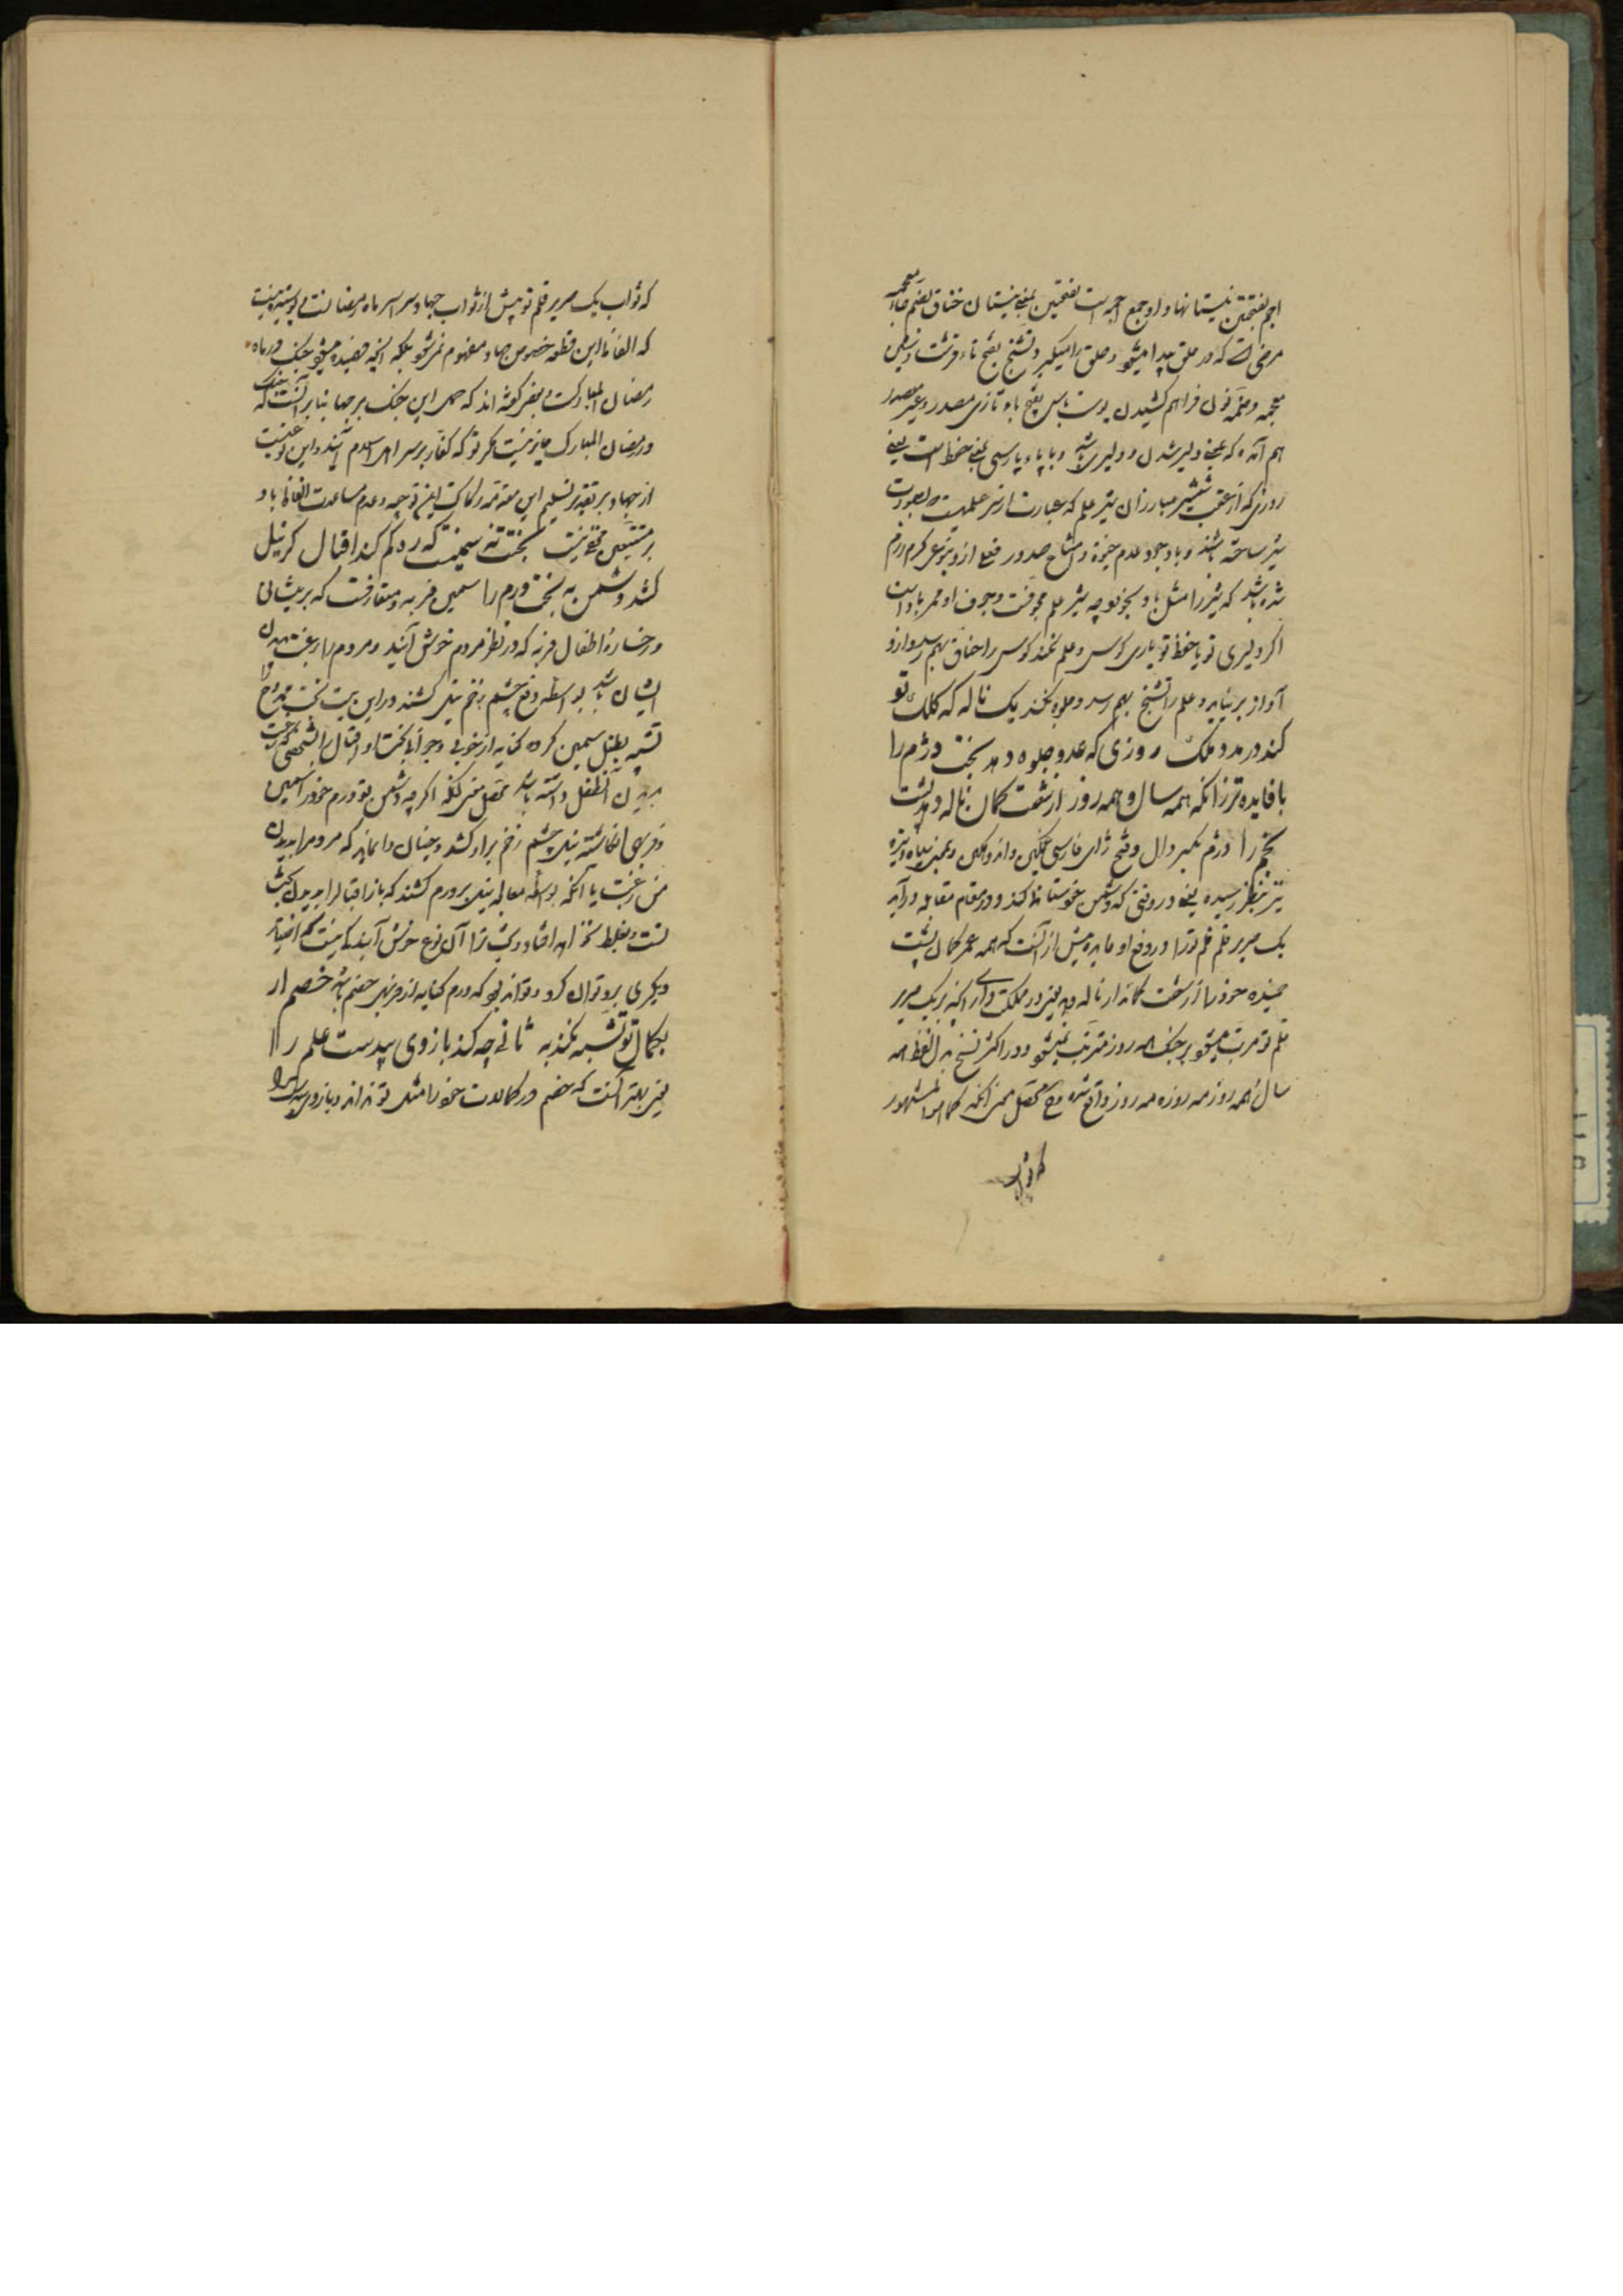 اجم بفتحتین نیستانها و او جمع اجمه است بفتحتین بمعنی نیستان خناق بضم خاء معجمه
مرضی است که در حلق پیدا میشود و حلق را میگیرد و تشنج بفتح تاء قرشت و شین
معجمه و ضمه نون فراهم کشیدن پوست باس بفتح باء تازی مصدر و غیر مصدر
هم آمده که بمعنی دلیر شدن و دلیری باشد و با پاء پارسی بمعنی حفظ است یعنی
روزی که از عقب شمشیر مبارزان شیر علم که عبارت از سر علمیست که بصورت
شیر ساخته باشند و با وجود عدم حیوة و امتناع صدور فعل ازو بنوعی گرم رزم
شده باشد که شیر را مثل باد بخورد چه شیر علم مجوفست و جوف او ممر باد است
اگر دلیری تو یا حفظ تو یاری کوس و علم نکند کوس را خناق بهم رسد و ازو
آواز بر نیاید و علم را تشنج بهم رسد و جلوه نکند یک ناله که کلک تو
کند در مدد ملک روزی که عدو جلوه دهد بخت دژم را
با فایده تر زانکه همه سال و همه روز از شصت کمان ناله دهد پشت
بخم را دژم بکسر دال و فتح ژای فارسی غمگین و اندوهگین و بمعنی سیاه و تیره
نیز بنظر رسیده یعنی در وقتی که دشمن خودستا ئی کند و در مقام مقابله درآید
یک صریر قلم تو را در دفع او فایده بیش از آنست که همه عمر کمان پشت
خمیده خود را از شصت کماندار ناله دهد یعنی در مملکت داری آنچه بر یک صریر
قلم تو مرتب میشود بر جنگ همه روز مترتب نمیشود و در اکثر نسخ بدل لفظ همه
سال و همه روز مه روزه همه روز واقع شده و محصل معنی آنکه کما هو المشهور
که ثواب
که ثواب یک صریر قلم تو بیش از ثواب جهاد سراسر ماه رمضانست پوشیده نیست
که الفاظ این قطعه خصوص جهاد مفهوم نمیشود بلکه آنچه فهمیده میشود جنگ در ماه
رمضان المبارکست و بعضی گفته اند که حمل این جنگ بر جهاد بنابر آنست که جنگ
در رمضان المبارک جایز نیست مگر وقتی که کفار بر سر اهل اسلام آیند و این نوعیست
از جهاد و بر تقدیر تسلیم این مقدمه رکاکت این توجیه و عدم مساعدت الفاظ با او
بر متتبعین مخفی نیست بختت نه سمینست که رد کم کند اقبال گر نیل
کشد دشمن به بخت ورم را سمین فربه و متعارفست که بر پیشانی
و رخساره اطفال فربه که در نظر مردم خوش آیند و مردم را رغبت بدیدن
ایشان باشد بواسطه دفع چشم زخم نیل کشند و در این بیت بخت ممدوح را
تشبیه بطفل سمین کرده کنایه از خوبی و جوانی بخت او و اقبال را بشخصی که رغبت
بدیدن آن طفل داشته باشد محصل معنی آنکه اگر چه دشمن تو ورم خود را سمین
و فربهی انگاشته نیل چشم زخم بر او کشد و چنان داند که مردم را بدیدن
من رغبت یا آنکه بواسطه معالجه نیل بر ورم کشند که باز اقبال را بدیدن بخت
تست و بغلط نخواهد افتاد و بخت ترا آن نوع خوش آیند گی نیست که اختیار
دیگری برو توان کرد و تواند بود که ورم کنایه از فربهی خصم باشد خصم ار
بکمال تو تشبه نکند به تا نی چه کند بازوی بیدست علم را
یعنی بهتر آنست که خصم در کمالات خود را مثل تو نداند و بازوی بیدست را